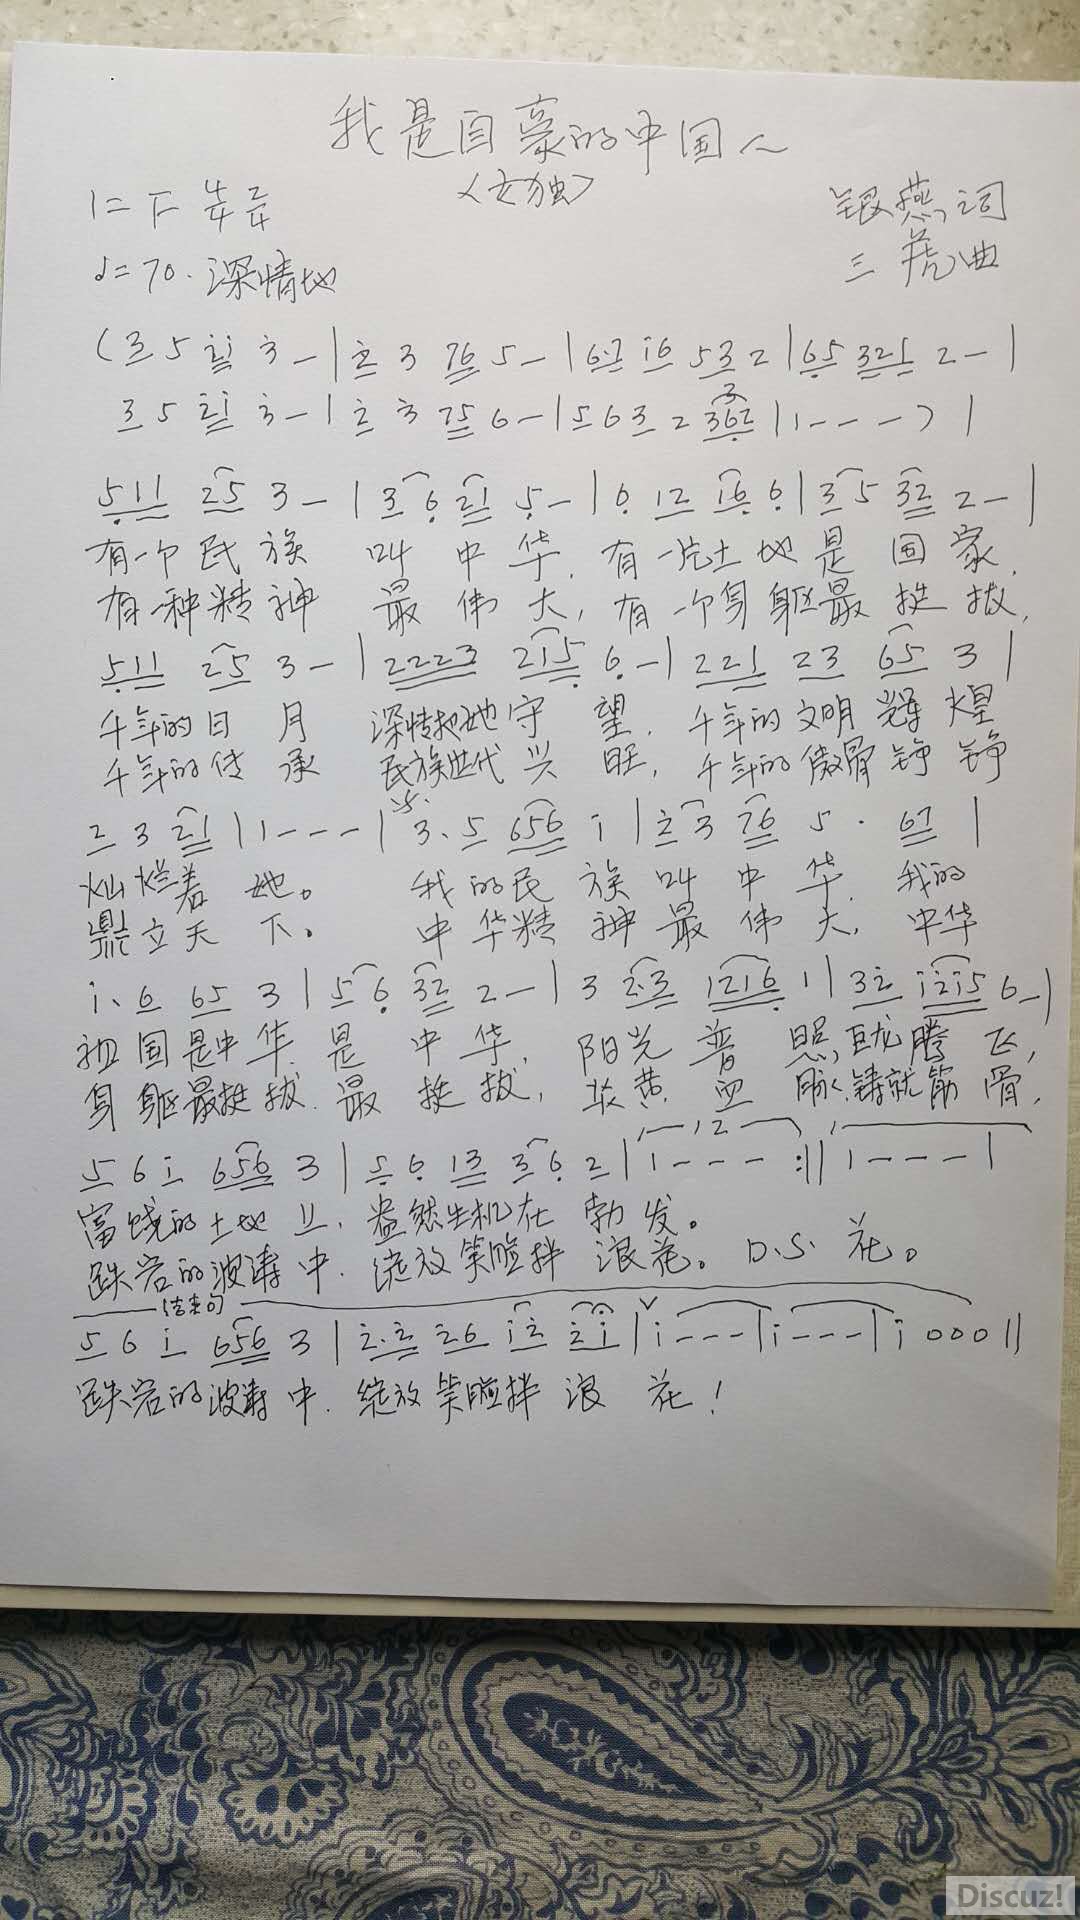 我是自豪的中国人
<女独>
1=F 4/4 2/4
银燕词
♩=70. 深情地
三虎曲
(3 5 2̇1̇ 3̇ - | 2̇ 3 76 5 - | 6·7 1̇6 5 3 2 | 65 321 2 - |
3 5 2̇1̇ 3̇ - | 2̇ 3̇ 75 6 - | 5 6 3 2 362 | 1 - - - ) |
511 25 3 - | 3 6 21 5 - | 6 12 16 6 | 3 5 32 2 - |
有一个民族 叫中华,有一片土地是国家,
有一种精神 最伟大,有一个身躯最挺拔,
511 25 3 - | 2223 215 6 - | 221 23 65 3 |
千年的日月 深情地她守望,千年的文明辉煌
千年的传承 民族世代兴旺,千年的傲骨铮铮
2 3 21 | 1 - - - | 3. 5 656 1̇ | 2̇ 3 76 5 . 67 |
灿烂着她。 我的民族叫中华,我的
鼎立天下。 中华精神最伟大,中华
1̇. 6 65 3 | 5 6 32 2 - | 3 2·3 1216 1 | 32̇ 1̇2̇1̇5 6 - |
祖国是中华是中华,阳光普照,巨龙腾飞,
身躯最挺拔.最挺拔,炎黄血脉,铸就筋骨,
5 6 1̇ 656 3 | 5 6 13 3 6 2 | 12 1 - - - :|| 1 - - - |
富饶的土地上,盎然生机在勃发。
跌宕的波涛中,绽放笑脸拌浪花。D.S. 花。
结束句
5 6 1̇ 656 3 | 2̇·2̇ 2̇6 1̇2̇ 2̇1̇ | 1̇ - - - | 1̇ - - - | 1̇ 0 0 0 ||
跌宕的波涛中.绽放笑脸拌浪花!
Discuz!